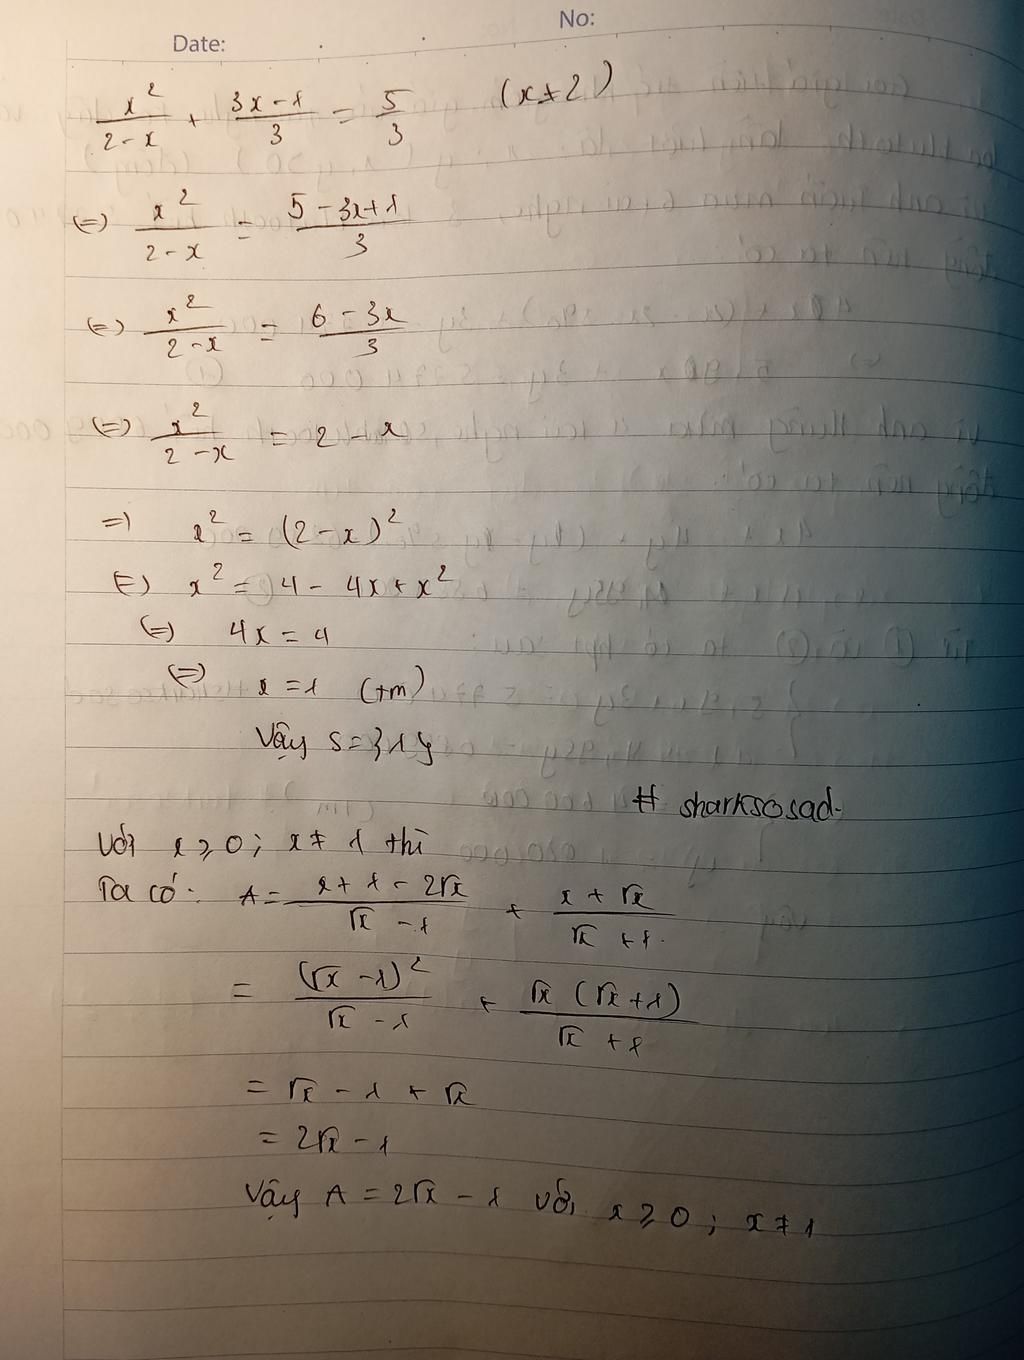 No:
Date:
x²/(2-x) + (3x-1)/3 = 5/3 (x≠2)
(=) x²/(2-x) = (5-3x+1)/3
(=) x²/(2-x) = (6-3x)/3
(=) x²/(2-x) = 2-x
=) x² = (2-x)²
(=) x² = 4 - 4x + x²
(=) 4x = 4
(=) x = 1 (tm)
Vậy S = {1}
# sharksosad.
Với x ≥ 0; x ≠ 1 thì
Ta có: A = (x+1-2√x)/(√x-1) + (x+√x)/(√x+1)
= (√x-1)²/(√x-1) + √x(√x+1)/(√x+1)
= √x - 1 + √x
= 2√x - 1
Vậy A = 2√x - 1 với x ≥ 0; x ≠ 1